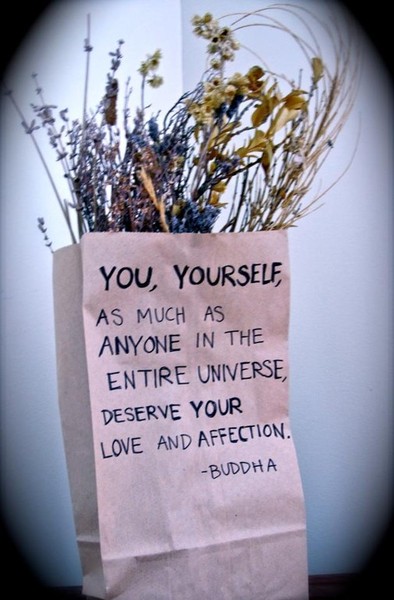 YOU, YOURSELF,
AS MUCH AS
ANYONE IN THE
ENTIRE UNIVERSE,
DESERVE YOUR
LOVE AND AFFECTION.
-BUDDHA